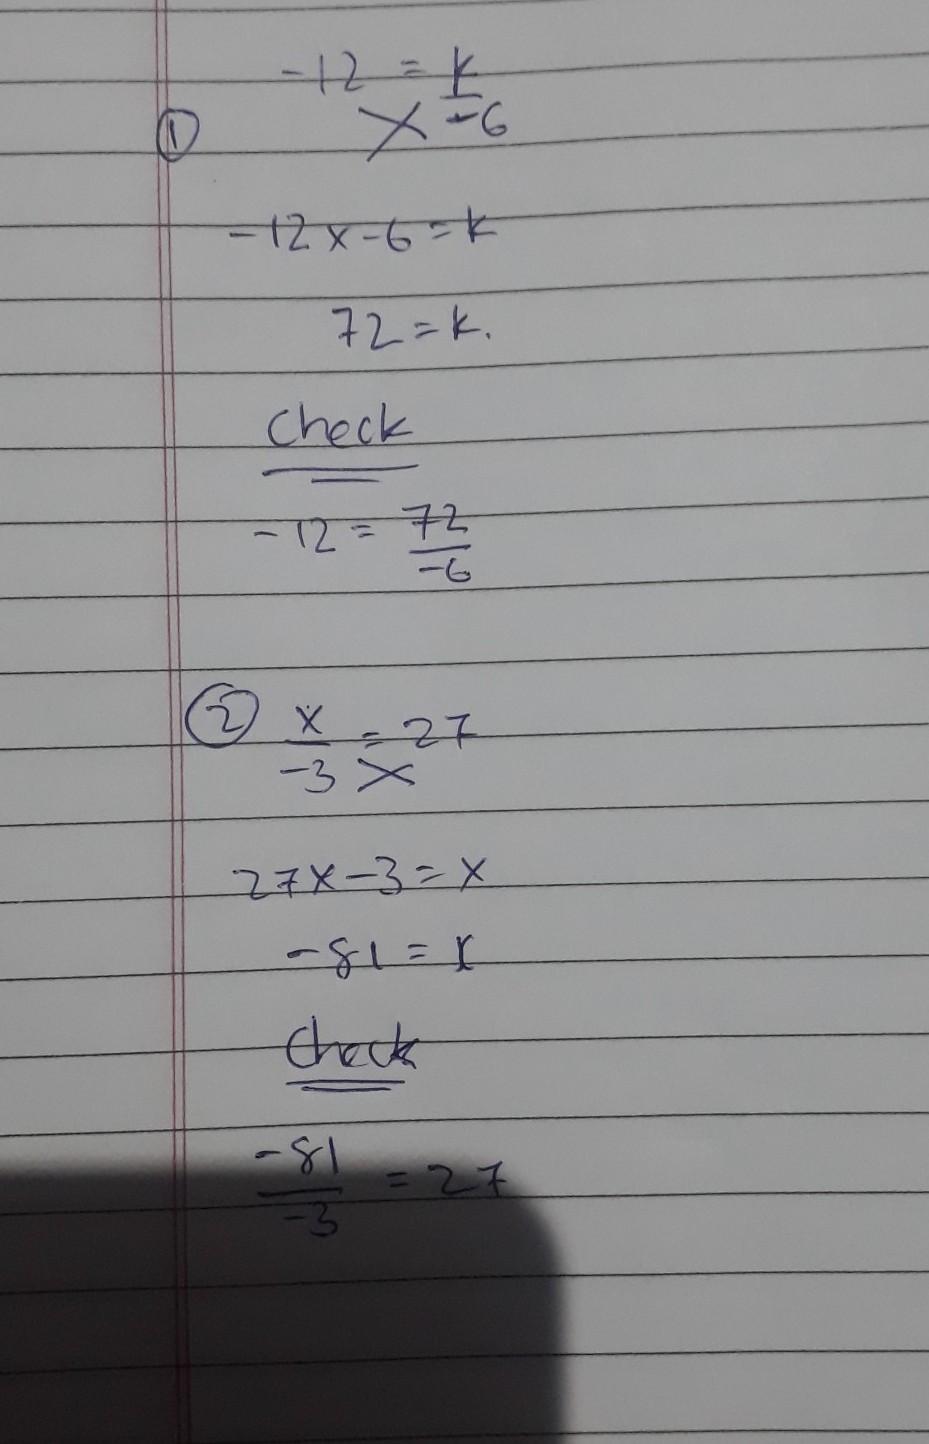 ① -12 = k/-6
-12 x -6 = k
72 = k.
Check
-12 = 72/-6
② x/-3 = 27
27 x -3 = x
-81 = x
Check
-81/-3 = 27